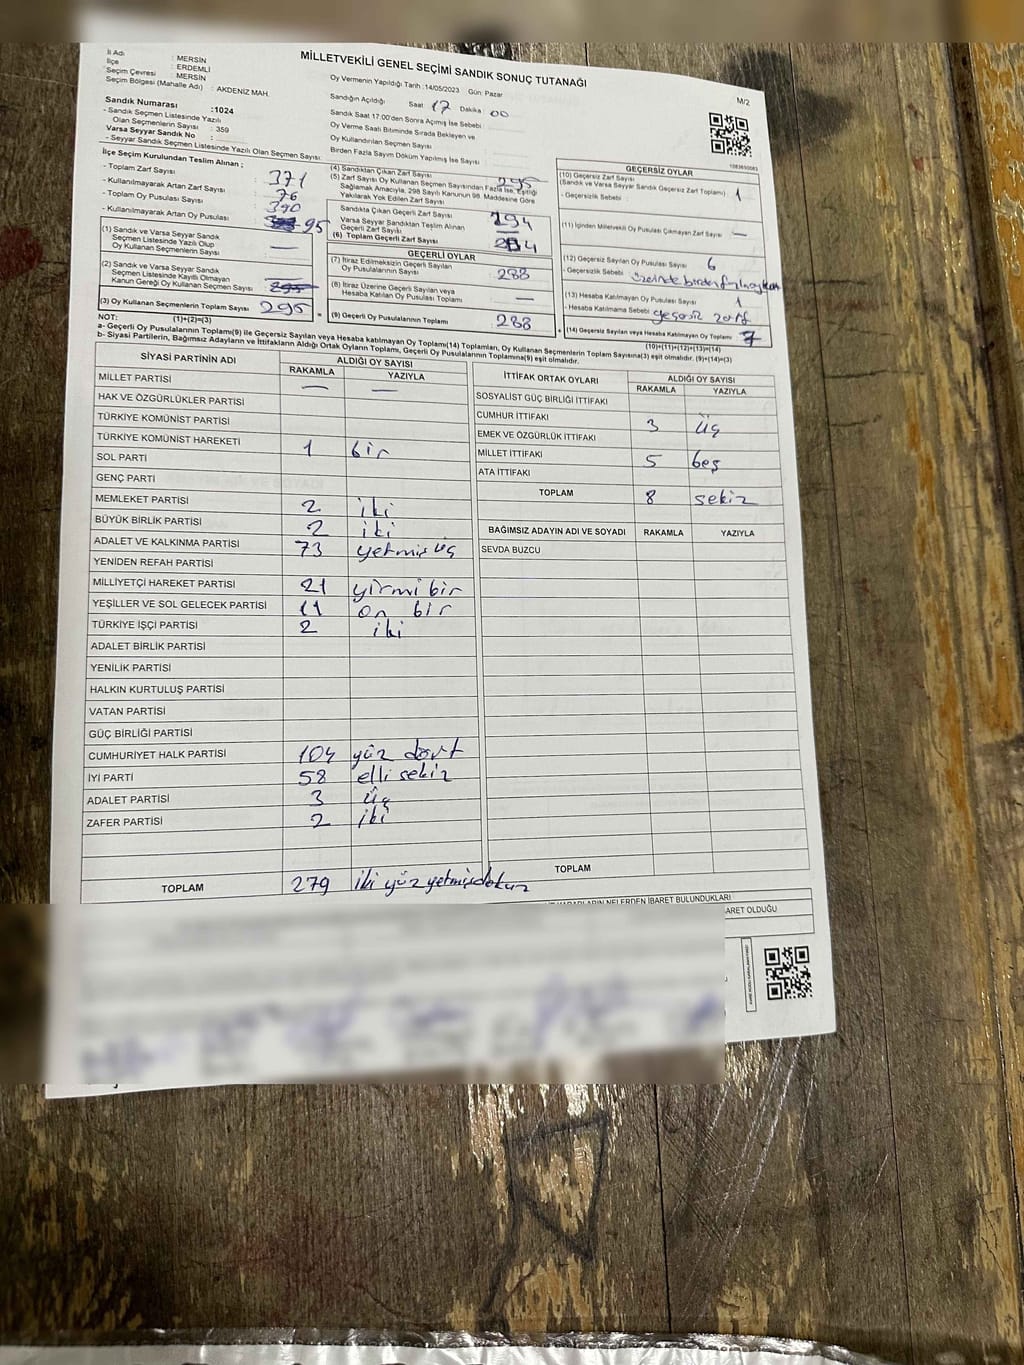 MİLLETVEKİLİ GENEL SEÇİMİ SANDIK SONUÇ TUTANAĞI
M/2
İl Adı : MERSİN
İlçe : ERDEMLİ
Seçim Çevresi : MERSİN
Seçim Bölgesi (Mahalle Adı) : AKDENİZ MAH.
Sandık Numarası :1024
- Sandık Seçmen Listesinde Yazılı
Olan Seçmenlerin Sayısı : 359
Varsa Seyyar Sandık No :
- Seyyar Sandık Seçmen Listesinde Yazılı Olan Seçmen Sayısı:
Oy Vermenin Yapıldığı Tarih :14/05/2023 Gün: Pazar
Sandığın Açıldığı Saat 17 Dakika 00
Sandık Saat 17.00'den Sonra Açımış İse Sebebi :
Oy Verme Saati Bitiminde Sırada Bekleyen ve
Oy Kullandırılan Seçmen Sayısı :
Birden Fazla Sayım Döküm Yapılmış İse Sayısı :
İlçe Seçim Kurulundan Teslim Alınan ;
- Toplam Zarf Sayısı : 371
- Kullanılmayarak Artan Zarf Sayısı : 76
- Toplam Oy Pusulası Sayısı : 390
- Kullanılmayarak Artan Oy Pusulası : 95
(1) Sandık ve Varsa Seyyar Sandık
Seçmen Listesinde Yazılı Olup
Oy Kullanan Seçmenlerin Sayısı : —
(2) Sandık ve Varsa Seyyar Sandık
Seçmen Listesinde Kayıtlı Olmayan
Kanun Gereği Oy Kullanan Seçmen Sayısı : 295
(3) Oy Kullanan Seçmenlerin Toplam Sayısı : 295
(1)+(2)=(3)
(4) Sandıktan Çıkan Zarf Sayısı : 295
(5) Zarf Sayısı Oy Kullanan Seçmen Sayısından Fazla İse, Eşitliği
Sağlamak Amacıyla, 298 Sayılı Kanunun 98. Maddesine Göre
Yakılarak Yok Edilen Zarf Sayısı :
Sandıkta Çıkan Geçerli Zarf Sayısı 294
Varsa Seyyar Sandıktan Teslim Alınan
Geçerli Zarf Sayısı —
(6) Toplam Geçerli Zarf Sayısı 294
GEÇERLİ OYLAR
(7) İtiraz Edilmeksizin Geçerli Sayılan
Oy Pusulalarının Sayısı : 288
(8) İtiraz Üzerine Geçerli Sayılan veya
Hesaba Katılan Oy Pusulası Toplamı : —
(9) Geçerli Oy Pusulalarının Toplamı : 288
GEÇERSİZ OYLAR
(10) Geçersiz Zarf Sayısı
(Sandık ve Varsa Seyyar Sandık Geçersiz Zarf Toplamı) : 1
- Geçersizlik Sebebi :
(11) İçinden Milletvekili Oy Pusulası Çıkmayan Zarf Sayısı : —
(12) Geçersiz Sayılan Oy Pusulası Sayısı : 6
- Geçersizlik Sebebi : üzerinde birden fazla
(13) Hesaba Katılmayan Oy Pusulası Sayısı : 1
- Hesaba Katılmama Sebebi : geçersiz zarf
(14) Geçersiz Sayılan veya Hesaba Katılmayan Oy Toplamı : 7
(10)+(11)+(12)+(13)=(14)
NOT:
a- Geçerli Oy Pusulalarının Toplamı(9) ile Geçersiz Sayılan veya Hesaba katılmayan Oy Toplamı(14) Toplamları, Oy Kullanan Seçmenlerin Toplam Sayısına(3) eşit olmalıdır. (9)+(14)=(3)
b- Siyasi Partilerin, Bağımsız Adayların ve İttifakların Aldığı Ortak Oyların Toplamı, Geçerli Oy Pusulalarının Toplamına(9) eşit olmalıdır.
SİYASİ PARTİNİN ADI ALDIĞI OY SAYISI
RAKAMLA YAZIYLA
MİLLET PARTİSİ — —
HAK VE ÖZGÜRLÜKLER PARTİSİ
TÜRKİYE KOMÜNİST PARTİSİ
TÜRKİYE KOMÜNİST HAREKETİ 1 bir
SOL PARTİ
GENÇ PARTİ
MEMLEKET PARTİSİ 2 iki
BÜYÜK BİRLİK PARTİSİ 2 iki
ADALET VE KALKINMA PARTİSİ 73 yetmiş üç
YENİDEN REFAH PARTİSİ
MİLLİYETÇİ HAREKET PARTİSİ 21 yirmi bir
YEŞİLLER VE SOL GELECEK PARTİSİ 11 on bir
TÜRKİYE İŞÇİ PARTİSİ 2 iki
ADALET BİRLİK PARTİSİ
YENİLİK PARTİSİ
HALKIN KURTULUŞ PARTİSİ
VATAN PARTİSİ
GÜÇ BİRLİĞİ PARTİSİ
CUMHURİYET HALK PARTİSİ 104 yüz dört
İYİ PARTİ 58 elli sekiz
ADALET PARTİSİ 3 üç
ZAFER PARTİSİ 2 iki
TOPLAM 279 iki yüz yetmişdokuz
İTTİFAK ORTAK OYLARI ALDIĞI OY SAYISI
RAKAMLA YAZIYLA
SOSYALİST GÜÇ BİRLİĞİ İTTİFAKI
CUMHUR İTTİFAKI 3 üç
EMEK VE ÖZGÜRLÜK İTTİFAKI
MİLLET İTTİFAKI 5 beş
ATA İTTİFAKI
TOPLAM 8 sekiz
BAĞIMSIZ ADAYIN ADI VE SOYADI RAKAMLA YAZIYLA
SEVDA BUZCU
TOPLAM
NELERDEN İBARET BULUNDUKLARI
OLDUĞU